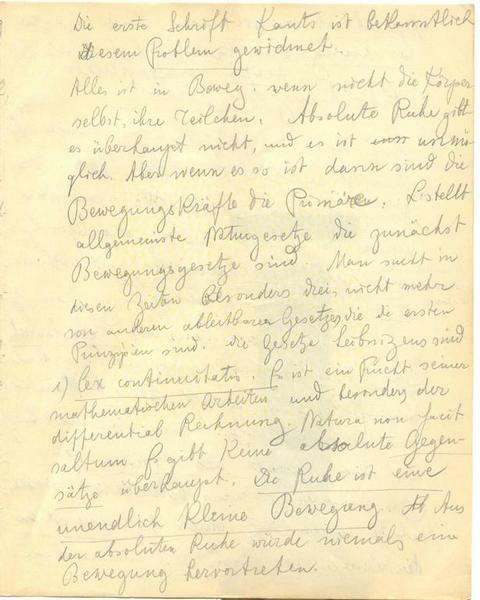 Die erste Schrift Kants ist bekanntlich
diesem Problem gewidmet.
Alles ist in Beweg. wenn nicht die Körper
selbst, ihre Teilchen. Absolute Ruhe gibt
es überhaupt nicht, und es ist unmö-
glich. Aber wenn es so ist dann sind die
Bewegungskräfte die Primären. L. stellt
allgemeinste Naturgesetze die zunächst
Bewegungsgesetze sind. Man sucht in
diesen Zeiten besonders drei, nicht mehr
von anderen ableitbaren Gesetze, die die ersten
Prinzipien sind. die Gesetze Leibnizens sind
1) lex continuitatis. Es ist ein Frucht seiner
mathematischen Arbeiten und besonders der
differential Rechnung. Natura non facit
saltum Es gibt Keine absolute Gegen-
sätze überhaupt. Die Ruhe ist eine
unendlich kleine Bewegung. Aus
der absoluten Ruhe würde niemals eine
Bewegung hervortreten.